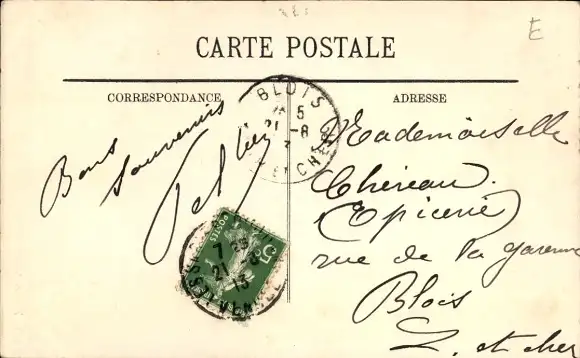 E
CARTE POSTALE
CORRESPONDANCE
ADRESSE
Bons
souvenirs
BLOIS
5
21-8
ET CHER
Mademoiselle
Chéreau
Epicerie
rue de la garenne
Blois
L. et cher
POSTES
5
7
21-8
13